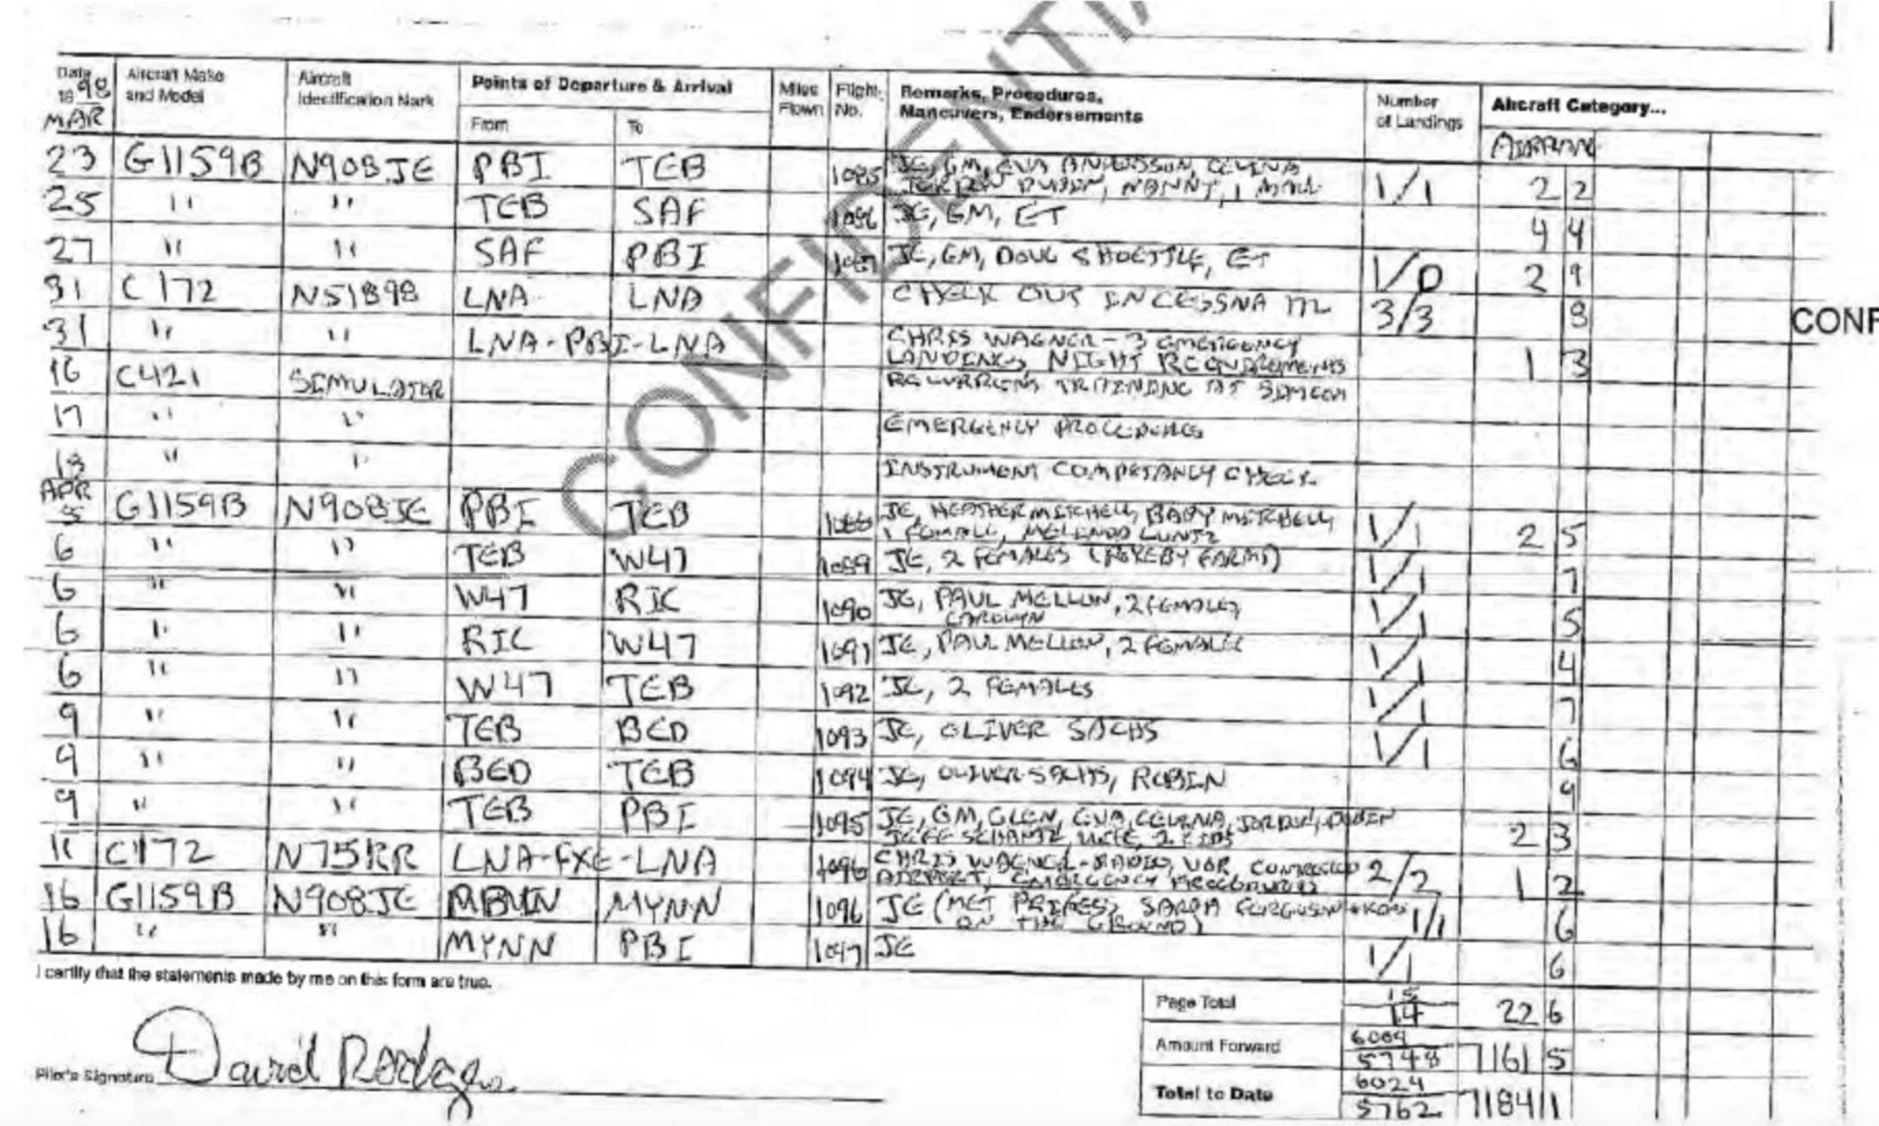 CONFIDENTIA
CONF
Date 1998 Aircraft Make and Model Aircraft Identification Mark Points of Departure & Arrival Miles Flown Flight No. Remarks, Procedures, Maneuvers, Endorsements Number of Landings Aircraft Category...
MAR From To AIRPLAN
23 G1159B N908JE PBI TEB 1085 JE, GM, EVA ANDERSSON, CELINA 1/1 2 2
NANNY, 1 MALE
25 " " TEB SAF 1086 JE, GM, ET 4 4
27 " " SAF PBI 1087 JE, GM, DOUG SHOETTLE, ET 1/0 2 9
31 C172 N51898 LNA LNA CHECK OUT IN CESSNA 172 3/3 8
31 " " LNA-PBI-LNA CHRIS WAGNER - 3 EMERGENCY 1 3
LANDINGS, NIGHT REQUIREMENTS
16 C421 SIMULATOR RECURRENT TRAINING AT SIMCOM
17 " " EMERGENCY PROCEDURES
18 " " INSTRUMENT COMPETANCY CHECK
APR
5 G1159B N908JE PBI TEB 1088 JE, HEATHER MITCHELL, BABY MITCHELL, 1/1 2 5
1 FEMALE, MELINDA LUNTZ
6 " " TEB W47 1089 JE, 2 FEMALES ( FARMS) 1/1 7
6 " " W47 RIC 1090 JE, PAUL MELLON, 2 FEMALES, 1/1 5
CAROLYN
6 " " RIC W47 1091 JE, PAUL MELLON, 2 FEMALES 1/1 4
6 " " W47 TEB 1092 JE, 2 FEMALES 1/1 7
9 " " TEB BED 1093 JE, OLIVER SACHS 1/1 6
9 " " BED TEB 1094 JE, OLIVER SACHS, ROBIN 9
9 " " TEB PBI 1095 JE, GM, GLEN, EVA, CELINA, JORDAN, 2 3
JEFF SCHANTZ, WIFE, 2 KIDS
11 C172 N75RR LNA-FXE-LNA 1096 CHRIS WAGNER-RADIO, VOR, CONTROLLED 2/2 1 2
AIRPORT, EMERGENCY PROCEDURES
16 G1159B N908JE MYNN 1096 JE (MET PRINCESS SARAH FERGUSON + KIDS 1/1 6
ON THE GROUND)
16 " " MYNN PBI 1097 JE 1/1 6
I certify that the statements made by me on this form are true.
Pilot's Signature David Rodgers
Page Total 15 14 22 6
Amount Forward 6009 5748 7161 5
Total to Date 6024 5762 7184 1